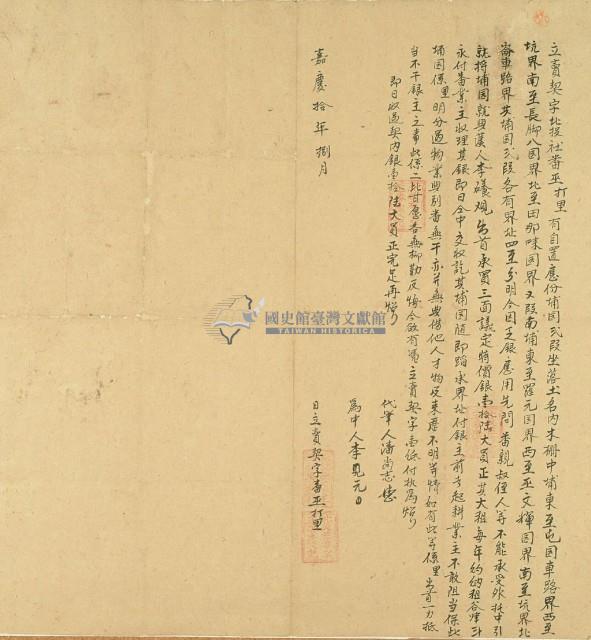 立賣契字北投社番巫打里有自置應份埔園弍段坐落土名內木柵中埔東至屯園車路界西至
坑界南至長腳八園界北至田郎味園界又段南埔東至羅元園界西至巫文輝園界南至坑界北
至車路界其埔園弍段各有界址四至分明今因乏銀應用先問番親叔侄人等不能承受外托中引
就將埔園就與漢人李議观出首承買三面議定時價銀壹拾陸大員正其大租每年約納租谷斗
永付番業主收理其銀即日仝中交收訖其埔園隨即踏承界址付銀主前去起耕業主不敢阻當保此
埔園係里明分過物業與別番無干亦并無典借他人才物及來歷不明等情如有此等係里出首一力抵
當不干銀主之事此係二比甘愿各無抑勤反悔今欲有憑立賣契字壹紙付执為炤
即日收過契內銀壹拾陸大員正完足再炤
代筆人潘尚志
為中人李見元
嘉慶拾年捌月 日立賣契字番巫打里
國史館臺灣文獻館
TAIWAN HISTORICA